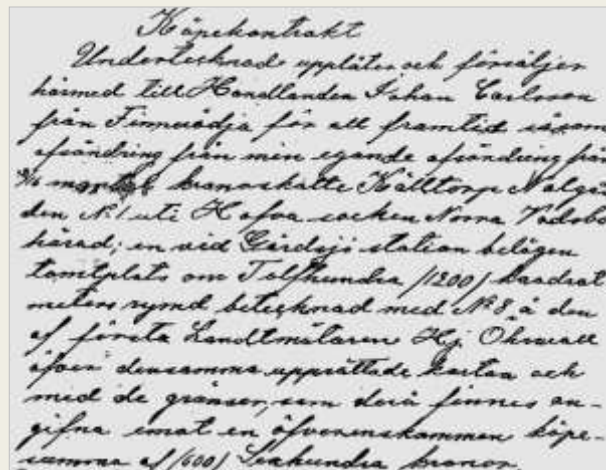 Köpekontrakt
Undertecknad upplåter och försäljer
härmed till Handlanden Johan Carlsson
från Finnerödja för all framtid såsom
afsöndring från min egande afsöndring från
mantal kronoskatte Källtorp Nolgår
den No 1 uti Hofva socken Norra Vadsbo
härad; en vid Gårdsjö station belägen
tomtplats om Tolfhundra /1200/ kvadrat
meters rymd betecknad med No 8, å den
af förste Landtmätaren Hj. Öhrwall
öfver densamma upprättade kartan och
med de gränser, som derå finnes an-
gifna emot en öfverenskommen köpe-
summa af /600/ Sexhundra kronor